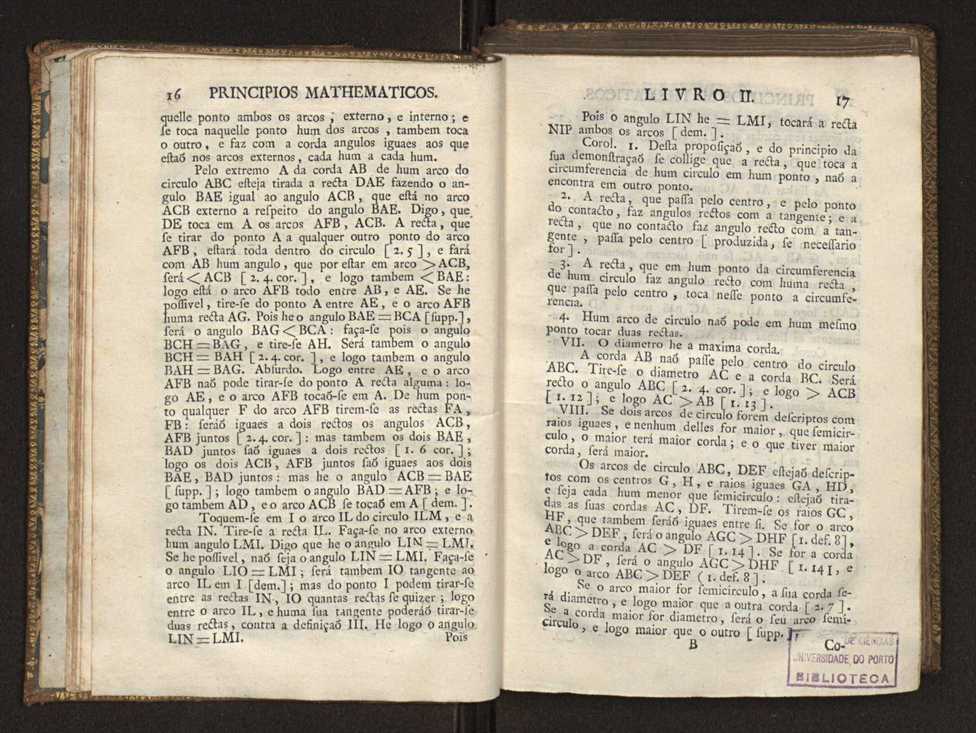 16 PRINCIPIOS MATHEMATICOS.
quelle ponto ambos os arcos, externo, e interno; e
ſe toca naquelle ponto hum dos arcos, tambem toca
o outro, e faz com a corda angulos iguaes aos que
eſtaõ nos arcos externos, cada hum a cada hum.
Pelo extremo A da corda AB de hum arco do
circulo ABC eſteja tirada a recta DAE fazendo o an-
gulo BAE igual ao angulo ACB, que eſtá no arco
ACB externo a reſpeito do angulo BAE. Digo, que
DE toca em A os arcos AFB, ACB. A recta, que
ſe tirar do ponto A a qualquer outro ponto do arco
AFB, eſtará toda dentro do circulo [2. 5], e fará
com AB hum angulo, que por eſtar em arco > ACB,
ſerá < ACB [2. 4. cor.], e logo tambem < BAE:
logo eſtá o arco AFB todo entre AB, e AE. Se he
poſſivel, tire-ſe do ponto A entre AE, e o arco AFB
huma recta AG. Pois he o angulo BAE = BCA [ſupp.],
ſerá o angulo BAG < BCA: faça-ſe pois o angulo
BCH = BAG, e tire-ſe AH. Será tambem o angulo
BCH = BAH [2. 4. cor.], e logo tambem o angulo
BAH = BAG. Abſurdo. Logo entre AE, e o arco
AFB naõ pode tirar-ſe do ponto A recta alguma: lo-
go AE, e o arco AFB tocaõ-ſe em A. De hum pon-
to qualquer F do arco AFB tirem-ſe as rectas FA,
FB: ſeráõ iguaes a dois rectos os angulos ACB,
AFB juntos [2. 4. cor.]: mas tambem os dois BAE,
BAD juntos ſaõ iguaes a dois rectos [1. 6 cor.];
logo os dois ACB, AFB juntos ſaõ iguaes aos dois
BAE, BAD juntos: mas he o angulo ACB = BAE
[ſupp.]; logo tambem o angulo BAD = AFB; e lo-
go tambem AD, e o arco ACB ſe tocaõ em A [dem.].
Toquem-ſe em I o arco IL do circulo ILM, e a
recta IN. Tire-ſe a recta IL. Faça-ſe no arco externo
hum angulo LMI. Digo que he o angulo LIN = LMI.
Se he poſſivel, naõ ſeja o angulo LIN = LMI. Faça-ſe
o angulo LIO = LMI; ſerá tambem IO tangente ao
arco IL em I [dem.]; mas do ponto I podem tirar-ſe
entre as rectas IN, IO quantas rectas ſe quizer; logo
entre o arco IL, e huma ſua tangente poderáõ tirar-ſe
duas rectas, contra a definiçaõ III. He logo o angulo
LIN = LMI. Pois
LIVRO II. 17
Pois o angulo LIN he = LMI, tocará a recta
NIP ambos os arcos [dem.].
Corol. 1. Deſta propoſiçaõ, e do principio da
ſua demonſtraçaõ ſe collige que a recta, que toca a
circumferencia de hum circulo em hum ponto, naõ a
encontra em outro ponto.
2. A recta, que paſſa pelo centro, e pelo ponto
do contacto, faz angulos rectos com a tangente; e a
recta, que no contacto faz angulo recto com a tan-
gente, paſſa pelo centro [produzida, ſe neceſſario
for].
3. A recta, que em hum ponto da circumferencia
de hum circulo faz angulo recto com huma recta,
que paſſa pelo centro, toca neſſe ponto a circumfe-
rencia.
4. Hum arco de circulo naõ pode em hum meſmo
ponto tocar duas rectas.
VII. O diametro he a maxima corda.
A corda AB naõ paſſe pelo centro do circulo
ABC. Tire-ſe o diametro AC e a corda BC. Será
recto o angulo ABC [2. 4. cor.]; e logo > ACB
[1. 12]; e logo AC > AB [1. 13].
VIII. Se dois arcos de circulo forem deſcriptos com
raios iguaes, e nenhum delles for maior, que ſemicir-
culo, o maior terá maior corda; e o que tiver maior
corda, ſerá maior.
Os arcos de circulo ABC, DEF eſtejaõ deſcrip-
tos com os centros G, H, e raios iguaes GA, HD,
e ſeja cada hum menor que ſemicirculo: eſtejaõ tira-
das as ſuas cordas AC, DF. Tirem-ſe os raios GC,
HF, que tambem ſeráõ iguaes entre ſi. Se for o arco
ABC > DEF, ſerá o angulo AGC > DHF [1. def. 8],
e logo a corda AC > DF [1. 14]. Se for a corda
AC > DF, ſerá o angulo AGC > DHF [1. 14], e
logo o arco ABC > DEF (1. def. 8].
Se o arco maior for ſemicirculo, a ſua corda ſe-
rá diametro, e logo maior que a outra corda [2. 7].
Se a corda maior for diametro, ſerá o ſeu arco ſemi-
circulo, e logo maior que o outro [ſupp.],
B Co-
DE CIENCIAS
UNIVERSIDADE DO PORTO
BIBLIOTECA